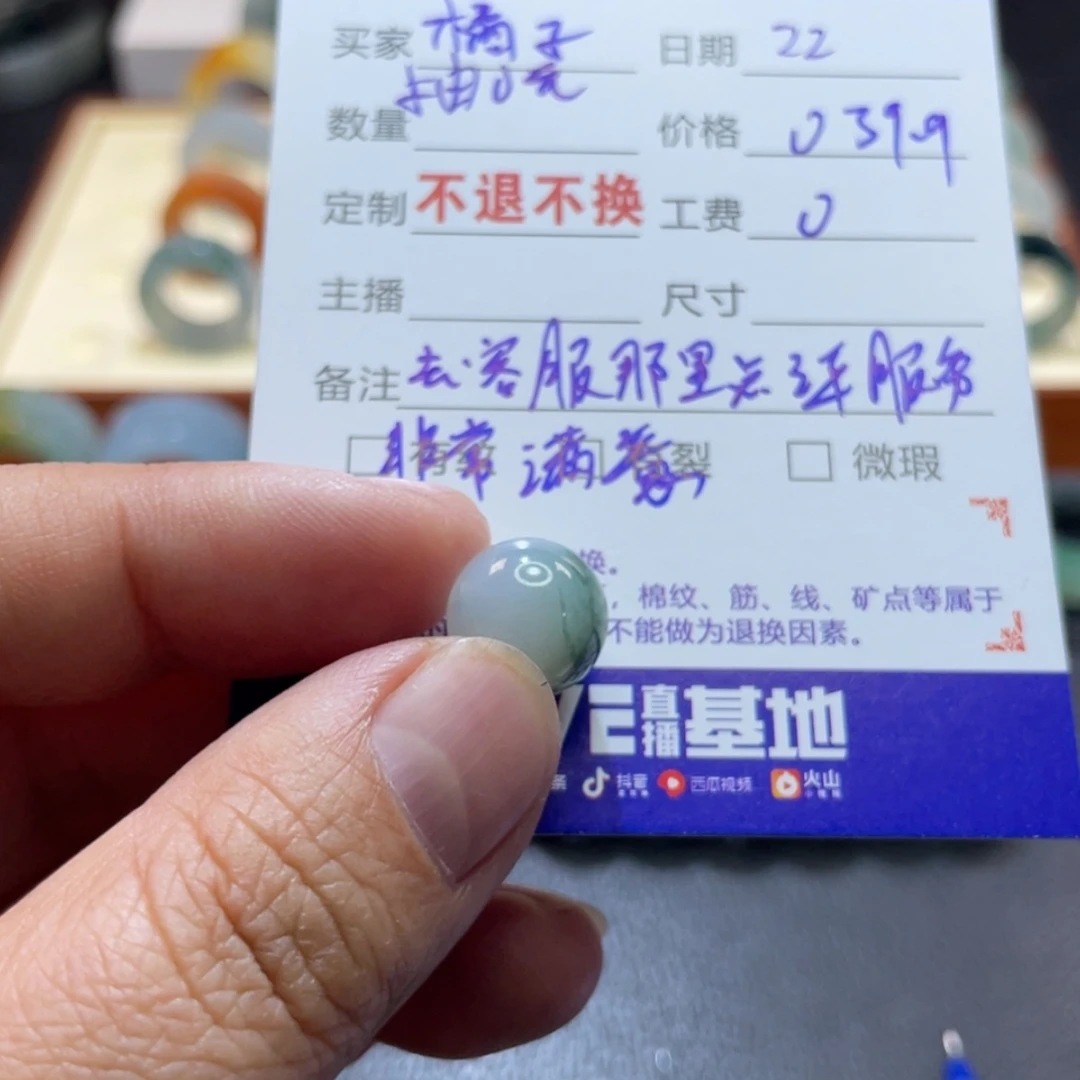 买家 橘子 日期 22
抽
数量 价格 0 39.9
定制 不退不换 工费 0
主播 尺寸
备注 去客服那里点 服务
非常满意
微瑕
换。
，棉纹、筋、线、矿点等属于
不能做为退换因素。
直播基地
抖音 西瓜视频 火山